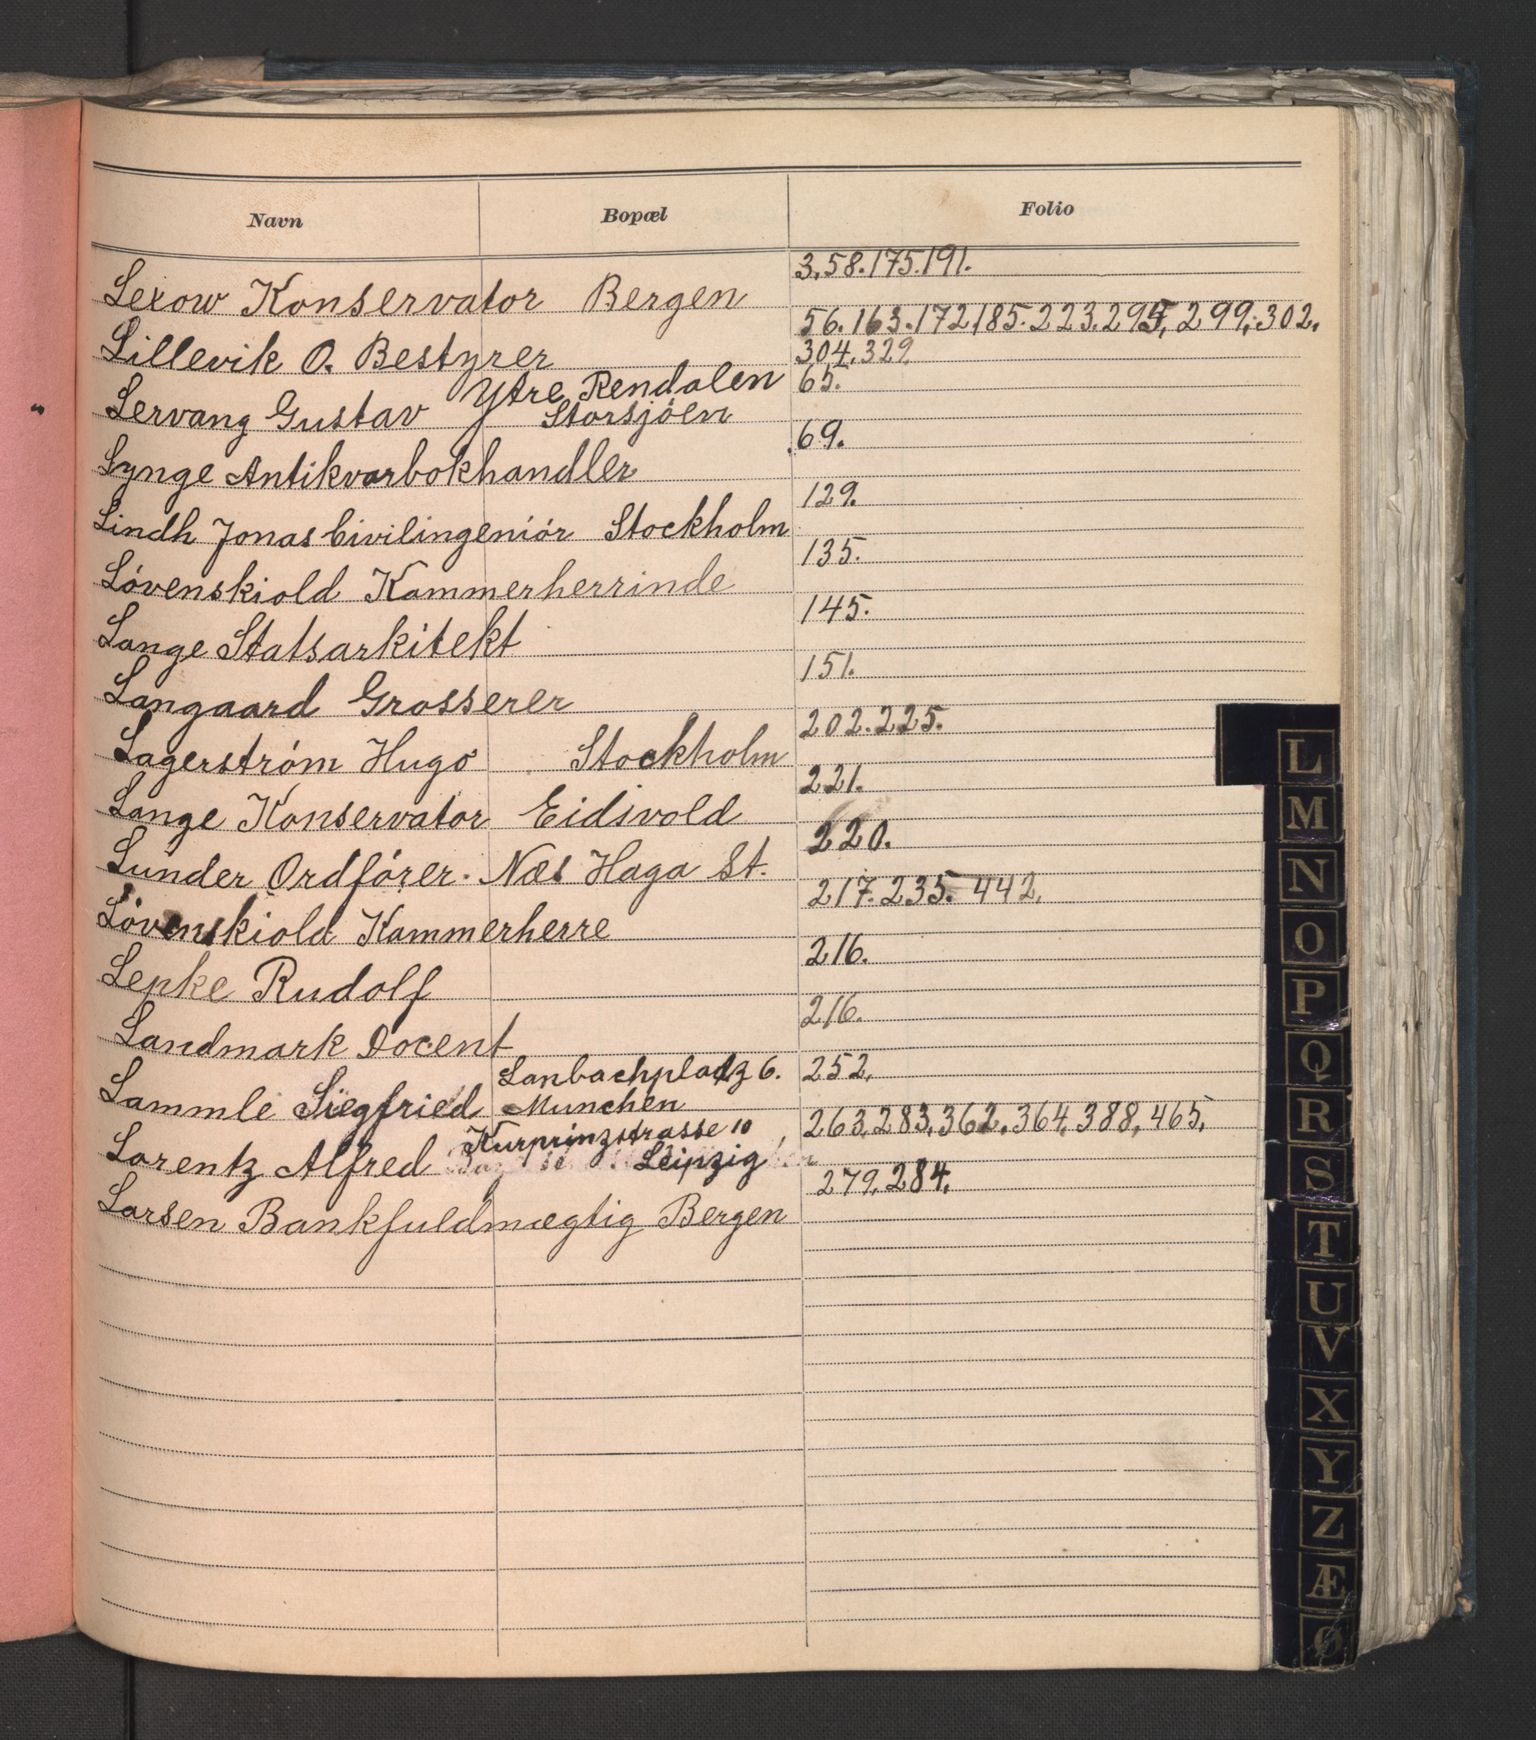 Navn Bopæl Folio
Lexow Konservator Bergen 3,58.175.191.
Lillevik O. Bestyrer 56.163.172,185.223.295, 299,302.
304.329.
Lervang Gustav Ytre Rendalen 65.
Storsjöen
Lynge Antikvarbokhandler 69.
Lindh Jonas Civilingeniör Stockholm 129.
Lövenskiold Kammerherrinde 135.
Lange Statsarkitekt 145.
Langaard Grosserer 151.
Lagerström Hugo Stockholm 202.225.
Lange Konservator Eidsvold 221.
Lunder Ordförer. Næs Haga St. 220.
Lövenskiold Kammerherre 217.235.442.
Lepke Rudolf 216.
Landmark Docent 216.
Lämmle Siegfried Lanbachplatz 6. 252.
Munchen
Lorentz Alfred Kurprinzstrasse 10 263,283,362,364,388,465,
Leipzig
Larsen Bankfuldmægtig Bergen 279,284,
L
M
N
O
P
Q
R
S
T
U
V
X
Y
Z
Æ
Ø